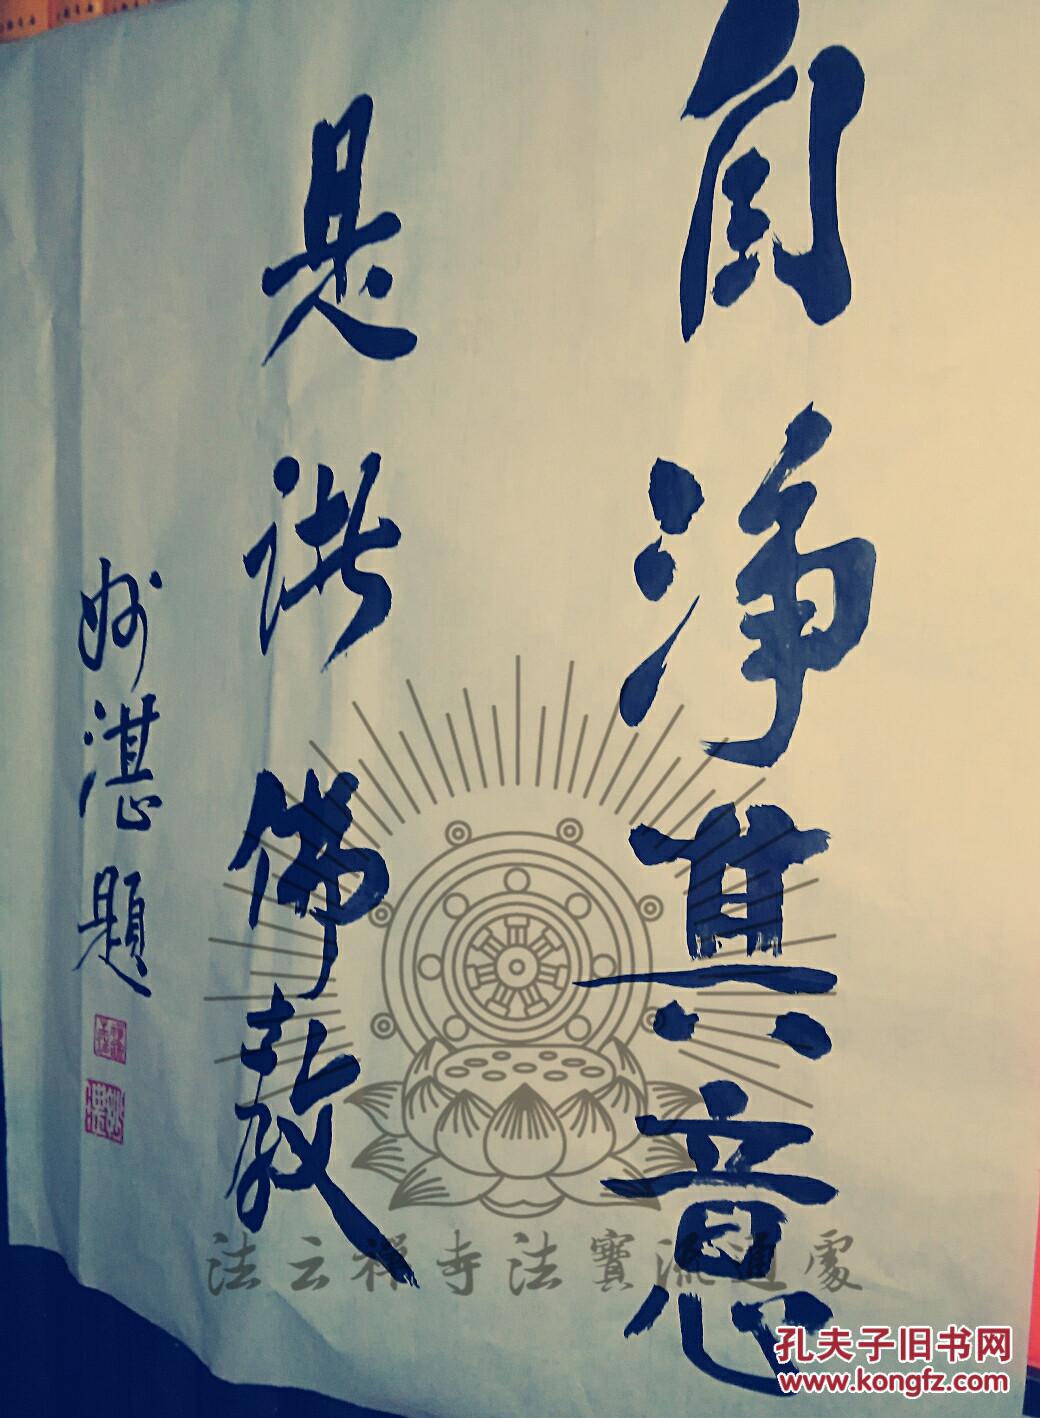 自净其意
是诸佛教
妙湛題
法云禅寺法寶流通處
孔夫子旧书网
www.kongfz.com